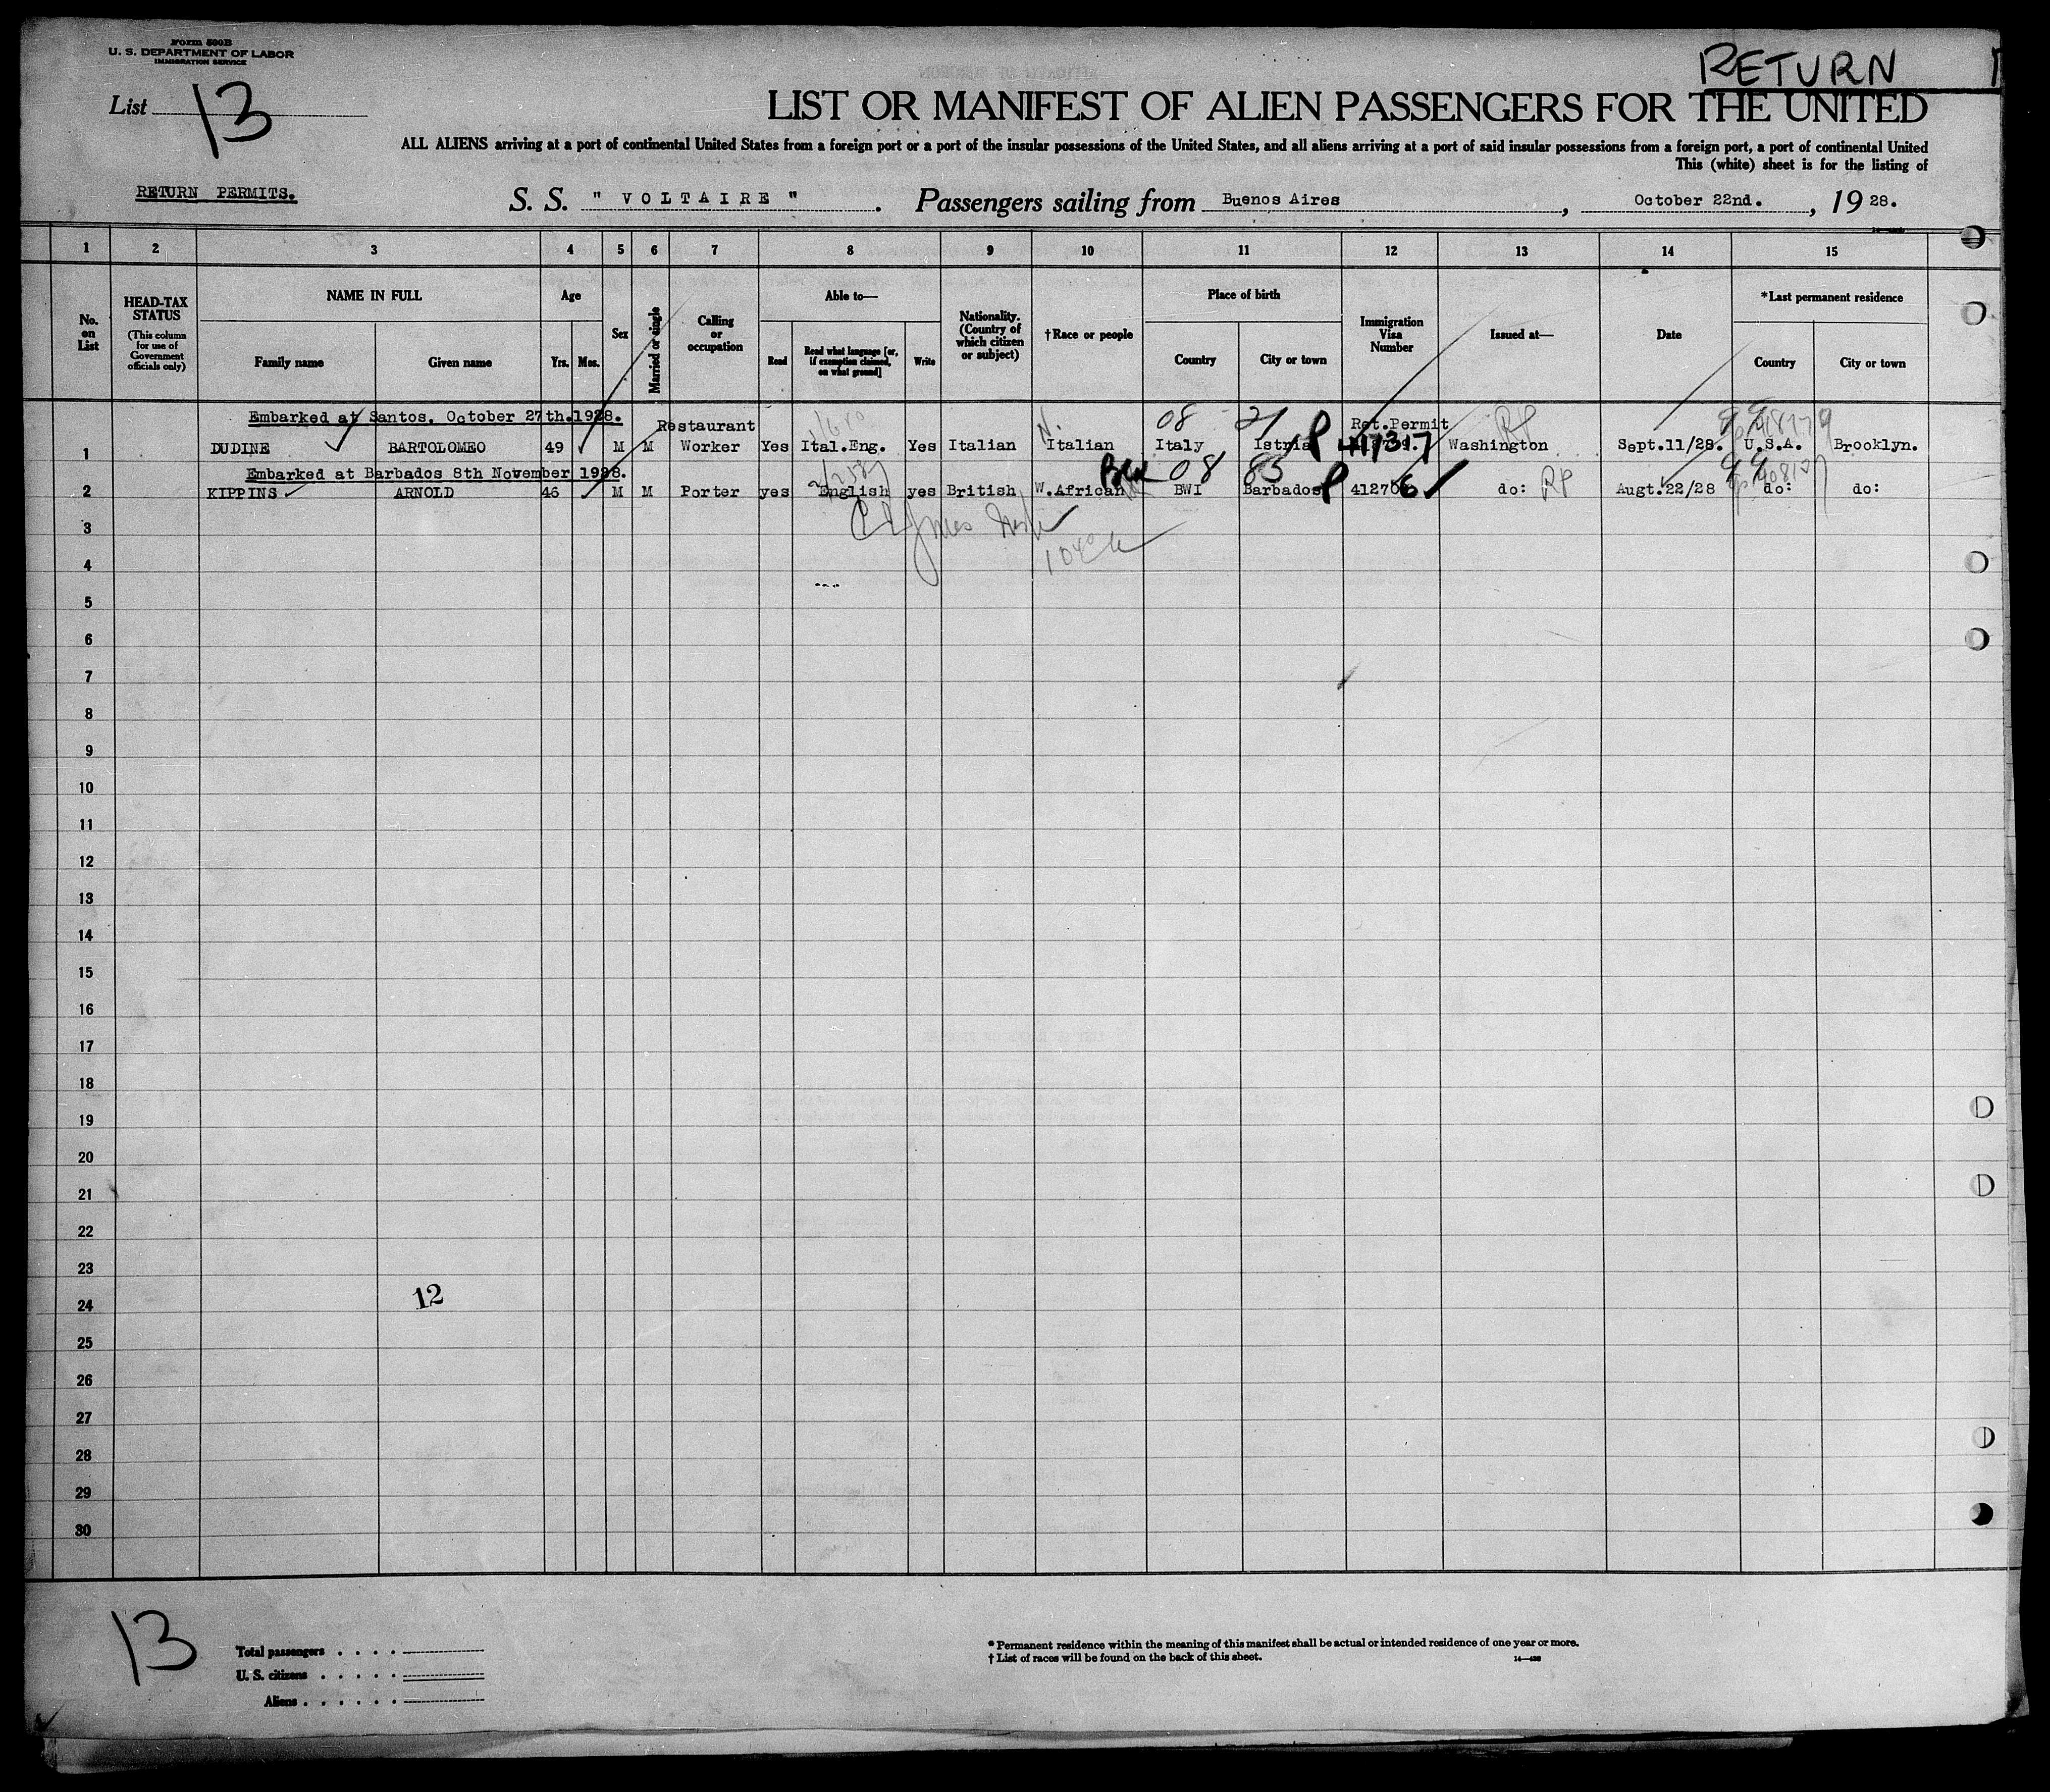 Form 500B
U. S. DEPARTMENT OF LABOR
IMMIGRATION SERVICE
RETURN
List 13
LIST OR MANIFEST OF ALIEN PASSENGERS FOR THE UNITED
ALL ALIENS arriving at a port of continental United States from a foreign port or a port of the insular possessions of the United States, and all aliens arriving at a port of said insular possessions from a foreign port, a port of continental United
This (white) sheet is for the listing of
RETURN PERMITS. S. S. " VOLTAIRE ". Passengers sailing from Buenos Aires, October 22nd., 1928.
1 2 3 4 5 6 7 8 9 10 11 12 13 14 15
No. on List
HEAD-TAX STATUS (This column for use of Government officials only)
NAME IN FULL Family name Given name
Age Yrs. Mos.
Sex
Married or single
Calling or occupation
Able to— Read Read what language [or, if exemption claimed, on what ground] Write
Nationality. (Country of which citizen or subject)
†Race or people
Place of birth Country City or town
Immigration Visa Number
Issued at—
Date
*Last permanent residence Country City or town
Embarked at Santos. October 27th.1928.
08 21
1 DUDINE BARTOLOMEO 49 M M Restaurant Worker Yes Ital.Eng. Yes Italian N. Italian Italy Istria Ret.Permit 417317 Washington RP Sept.11/28. U.S.A. Brooklyn.
Embarked at Barbados 8th November 1928.
08 85
2 KIPPINS ARNOLD 46 M M Porter yes English yes British W.African BWI Barbados 412706 do: RP Augt.22/28 do: do:
3
4
5
6
7
8
9
10
11
12
13
14
15
16
17
18
19
20
21
22
23
12
24
25
26
27
28
29
30
13
Total passengers
U. S. citizens
Aliens
* Permanent residence within the meaning of this manifest shall be actual or intended residence of one year or more.
† List of races will be found on the back of this sheet.